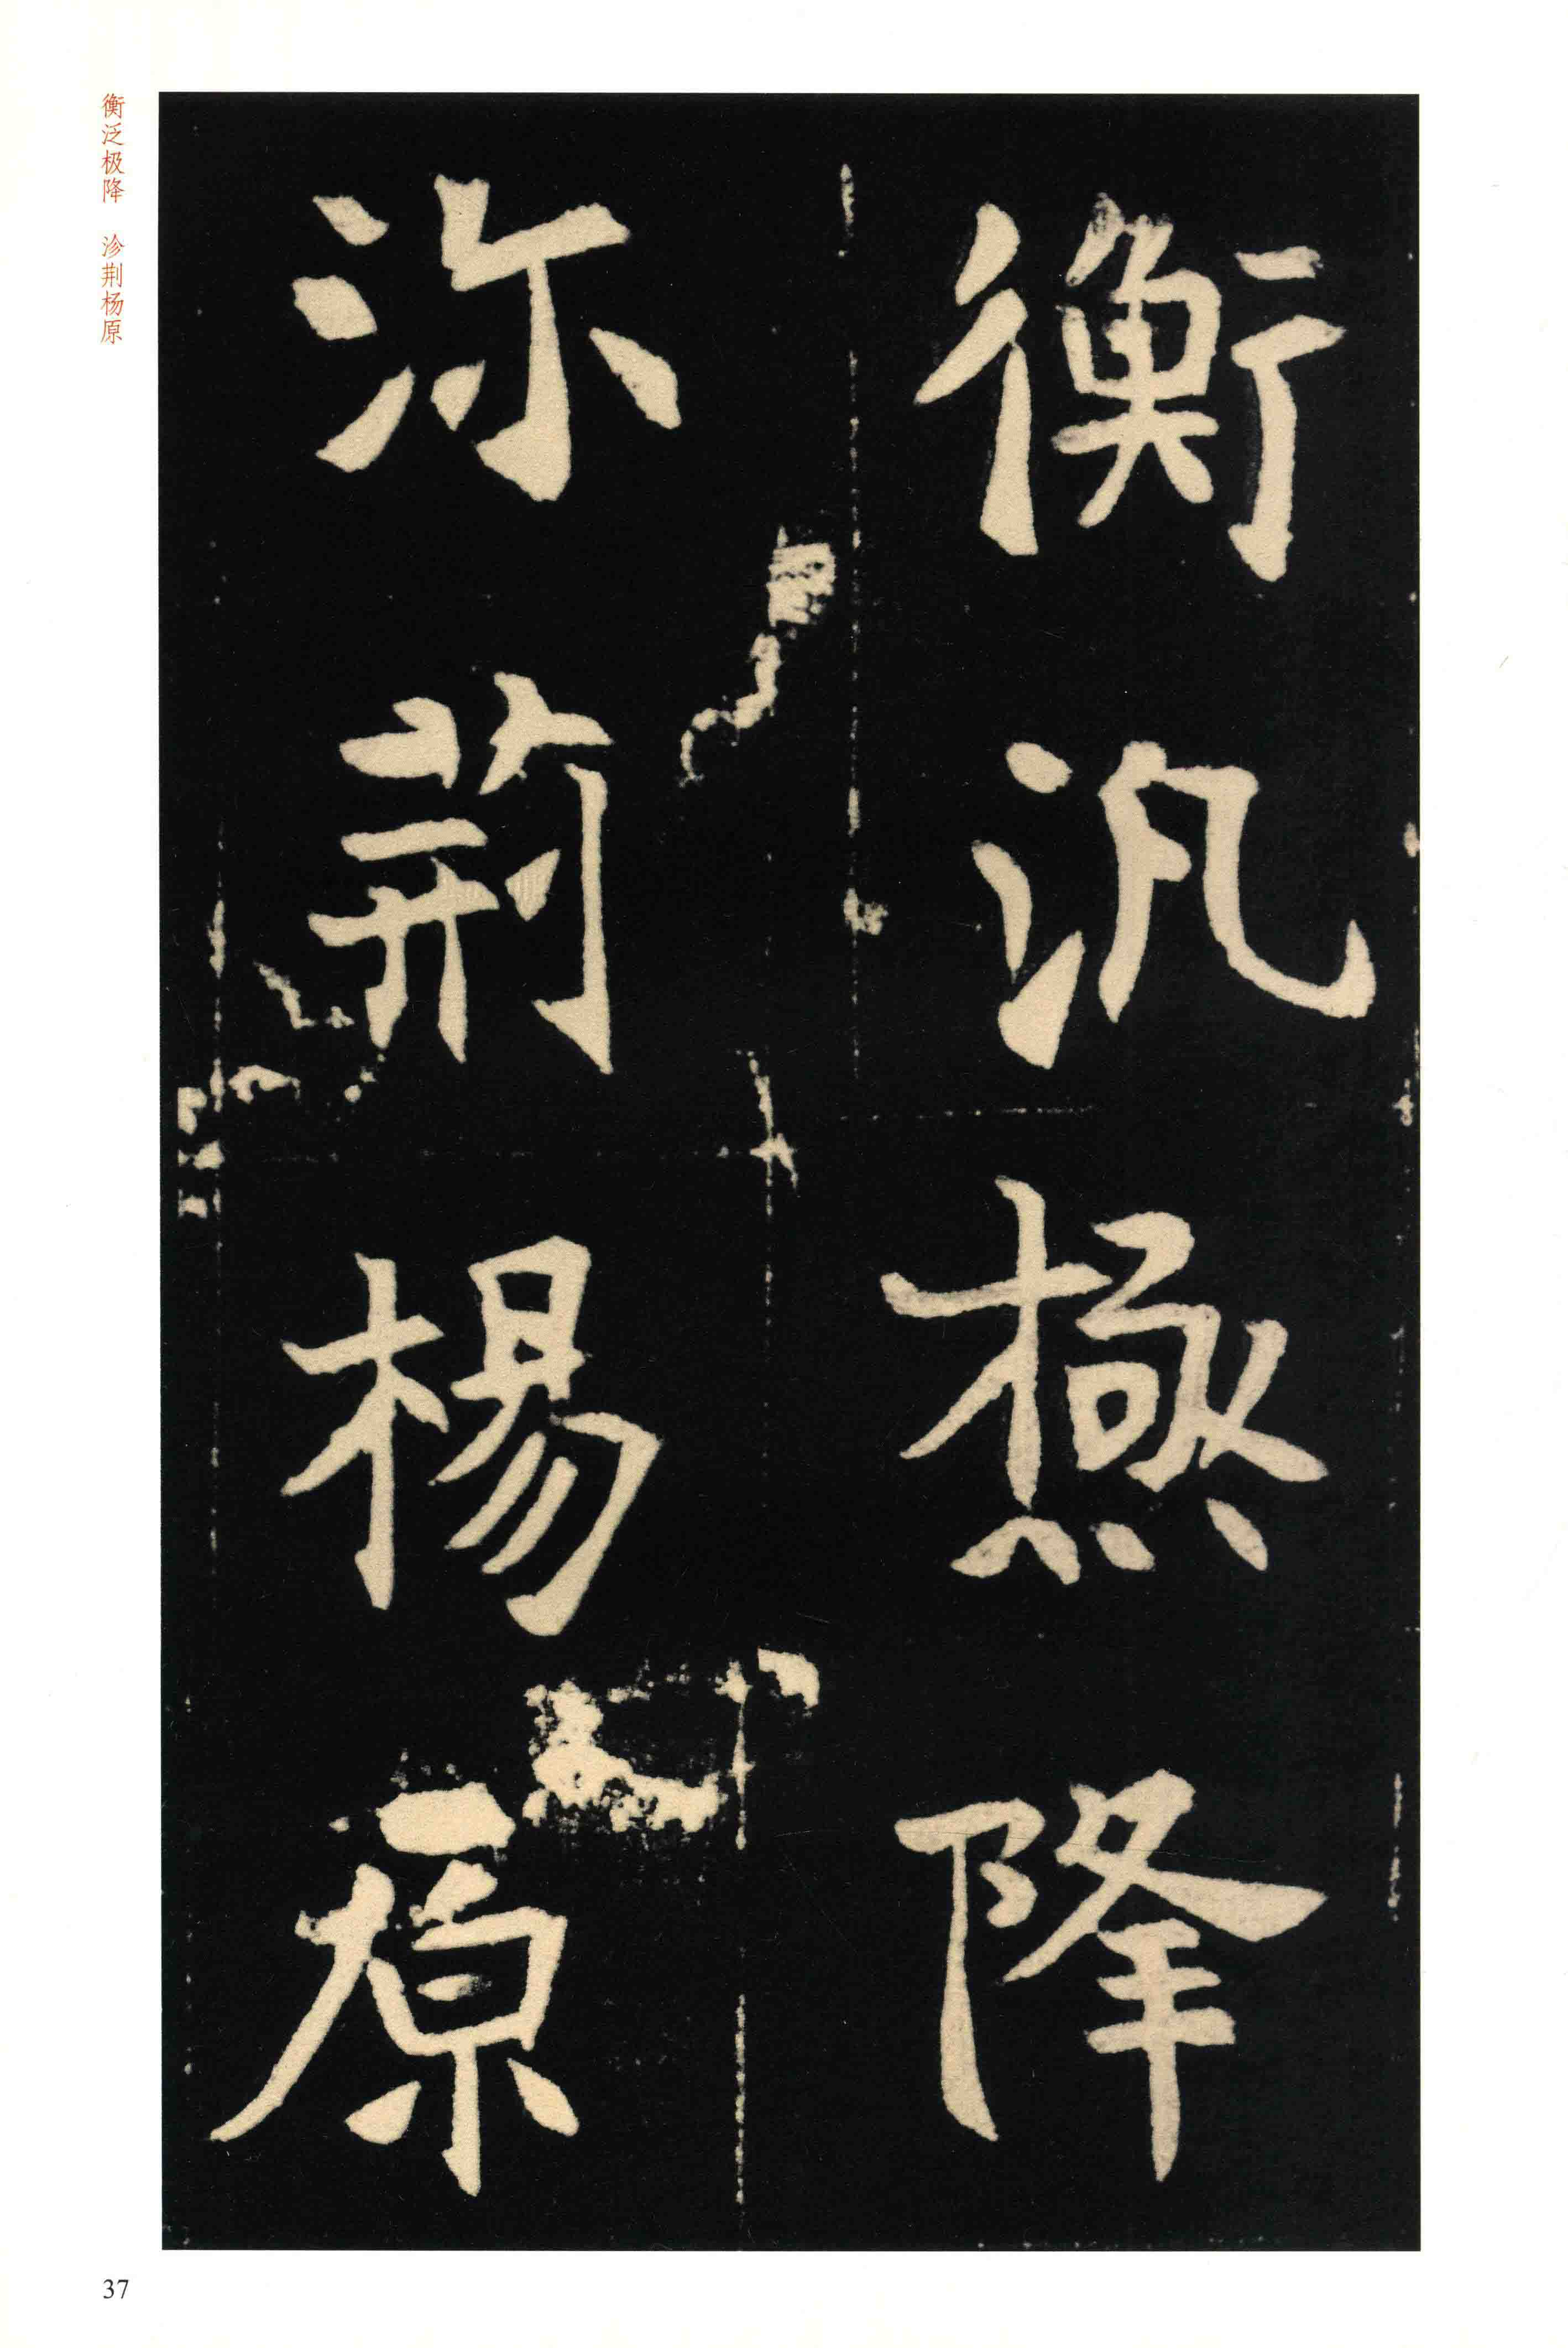 衡汎極降
沵荊楊原
衡泛极降 沴荆杨原
37